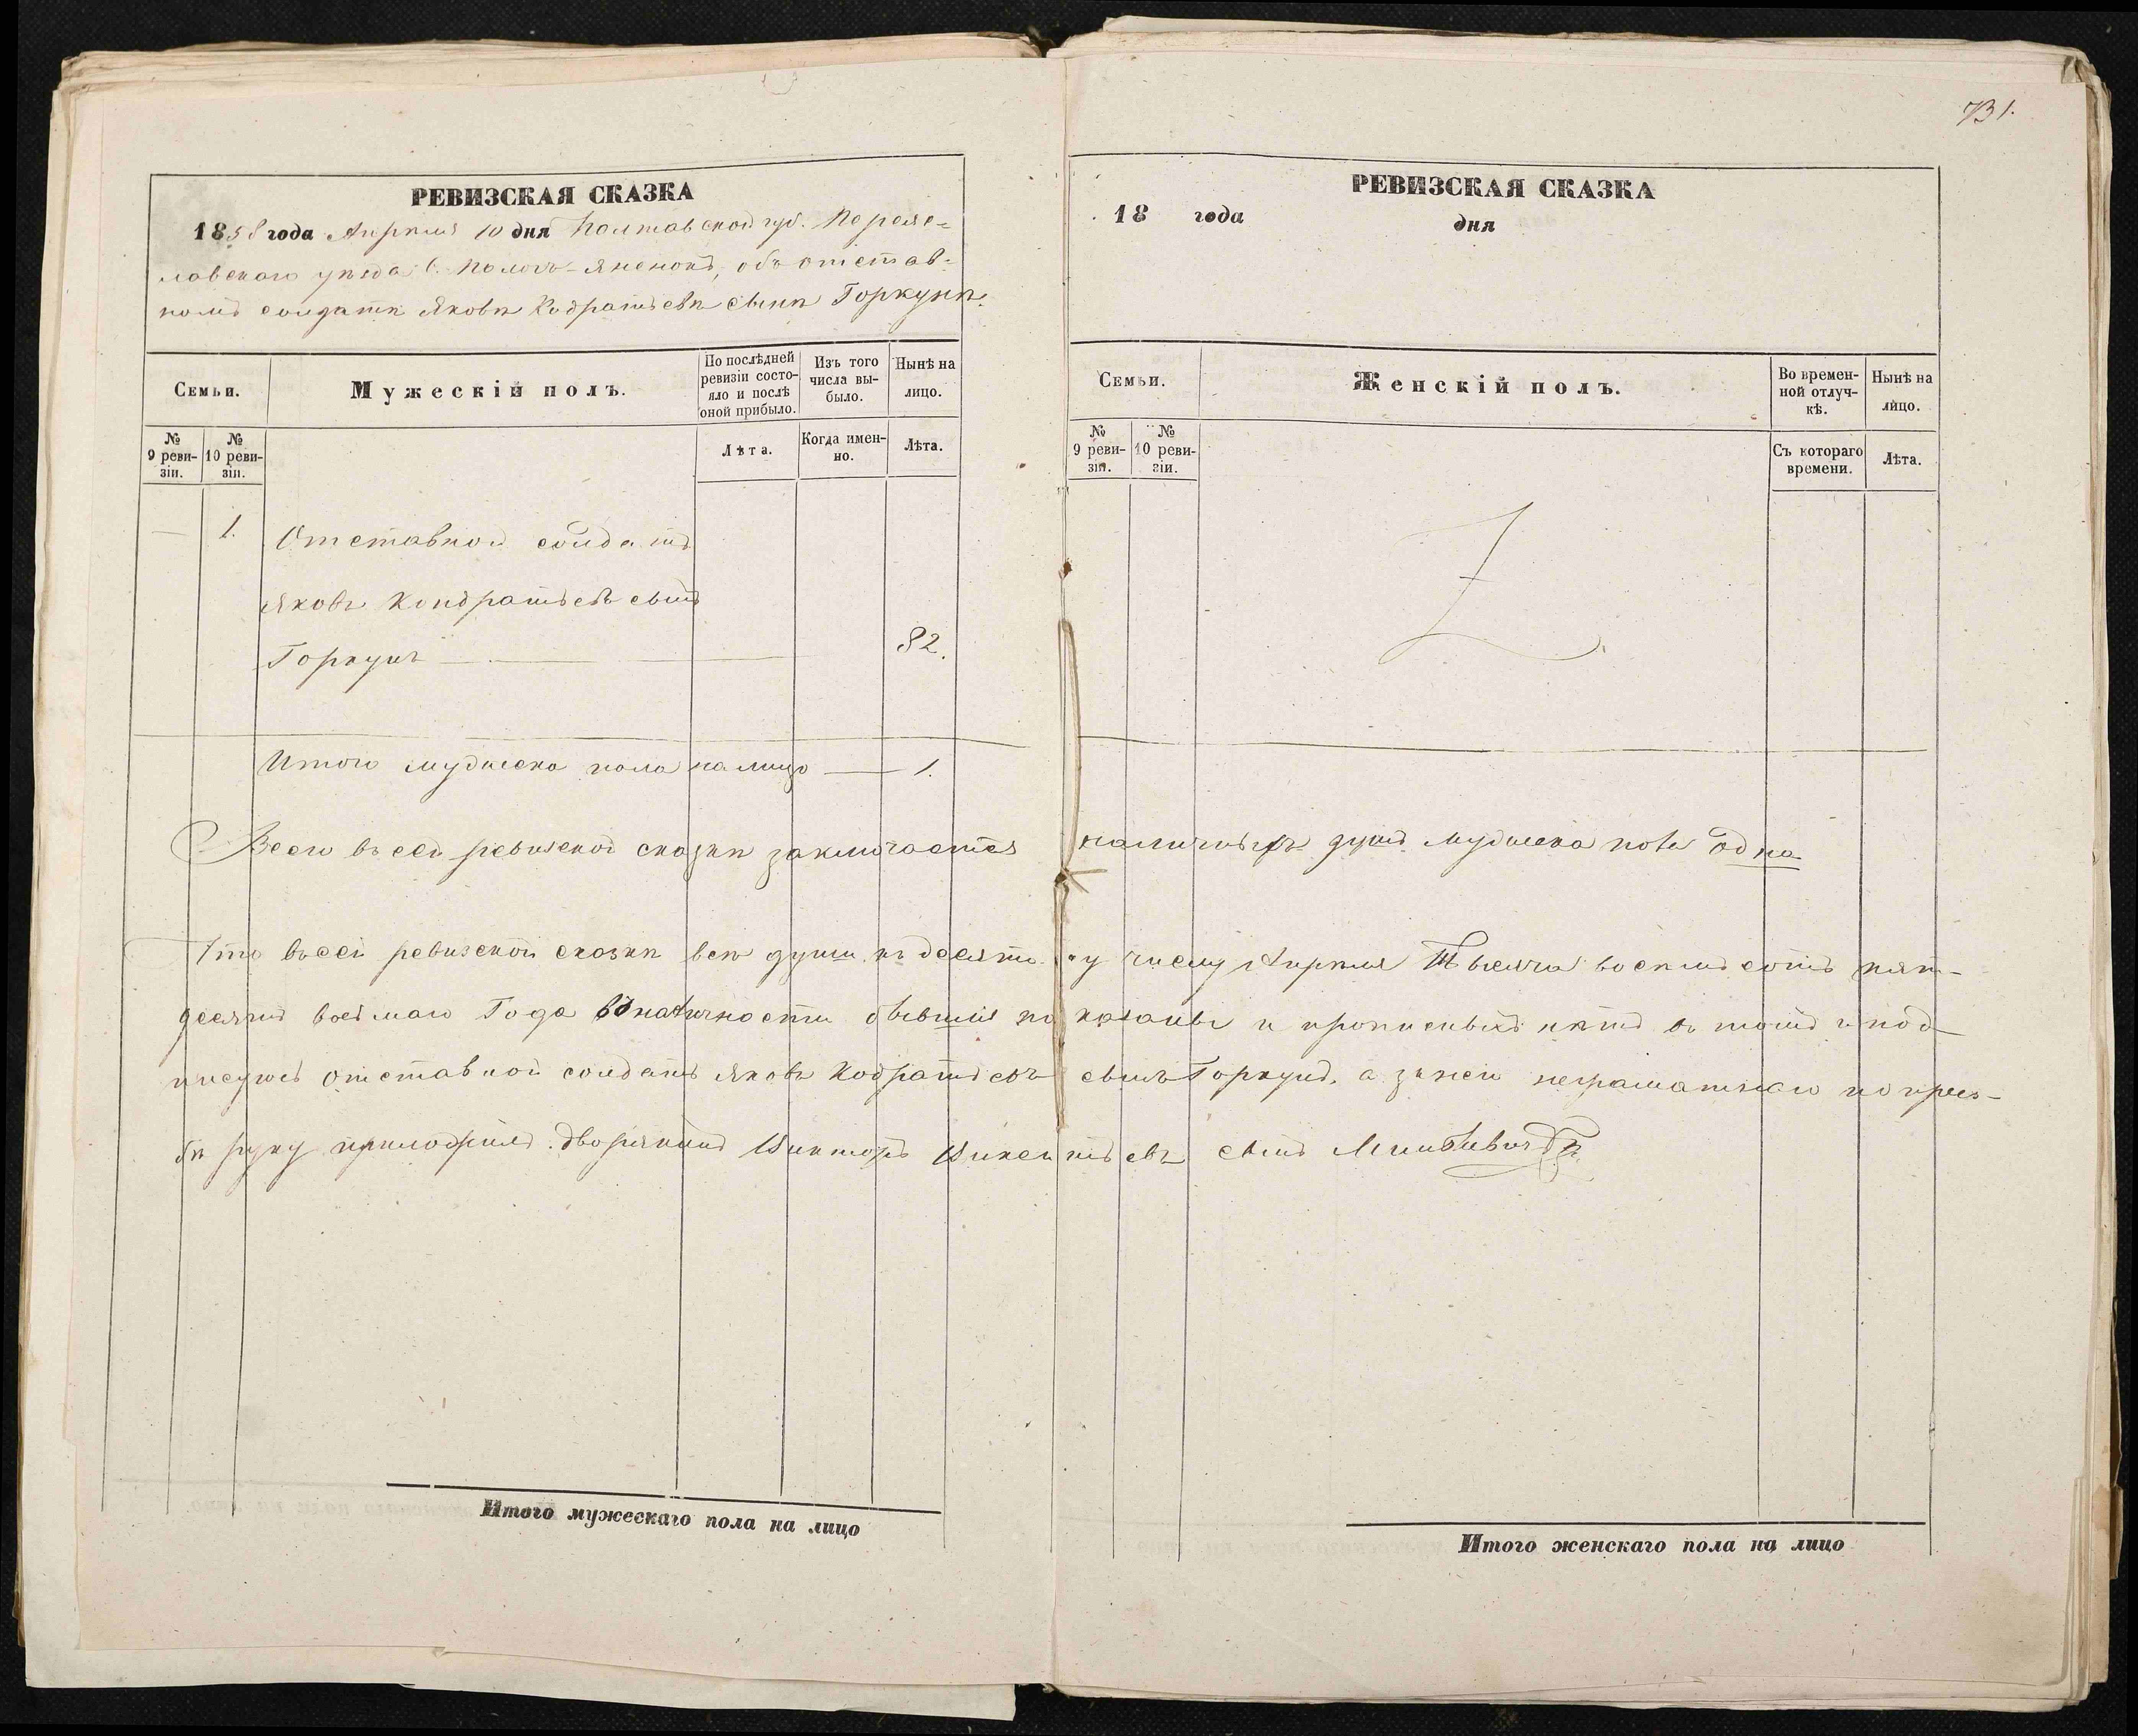 731.
РЕВИЗСКАЯ СКАЗКА
1858 года Апрѣля 10 дня Полтавской губ. Переяс=
лавскаго уѣзда с. Пологъ-Яненокъ, объ отстав-
номъ солдатѣ Яковѣ Кодратьевѣ сынѣ Горкунѣ.
Семьи.
Мужескій полъ.
По послѣдней ревизіи состо-
яло и послѣ оной прибыло.
Изъ того числа вы-
было.
Нынѣ на лицо.
№ 9 реви-
зіи.
№ 10 реви-
зіи.
Лѣта.
Когда имен-
но.
Лѣта.
— 1. Отставной солдатъ
Яковъ Кондратьевъ сынъ
Горкунъ — 82.
Итого мужеска пола на лицо — 1.
РЕВИЗСКАЯ СКАЗКА
18 года дня
Семьи.
Женскій полъ.
Во времен-
ной отлуч-
кѣ.
Нынѣ на лицо.
№ 9 реви-
зіи.
№ 10 реви-
зіи.
Съ котораго времени.
Лѣта.
Всего въ сей ревизской сказкѣ заключается наличныхъ душъ мужеска пола одна
Что въ сей ревизской сказкѣ всѣ души къ десято му числу Апрѣля Тысяча восемь сотъ пять-
десятъ восьмаго Года въ наличности бывшія показаны и прописныхъ нѣтъ въ томъ и под-
писуюсь отставной солдатъ Яковъ Кодратьевъ сынъ Горкунъ, а за него неграматнаго по прось-
бѣ руку приложилъ дворянинъ Викторъ Викентьевъ сынъ
Итого мужескаго пола на лицо
Итого женскаго пола на лицо